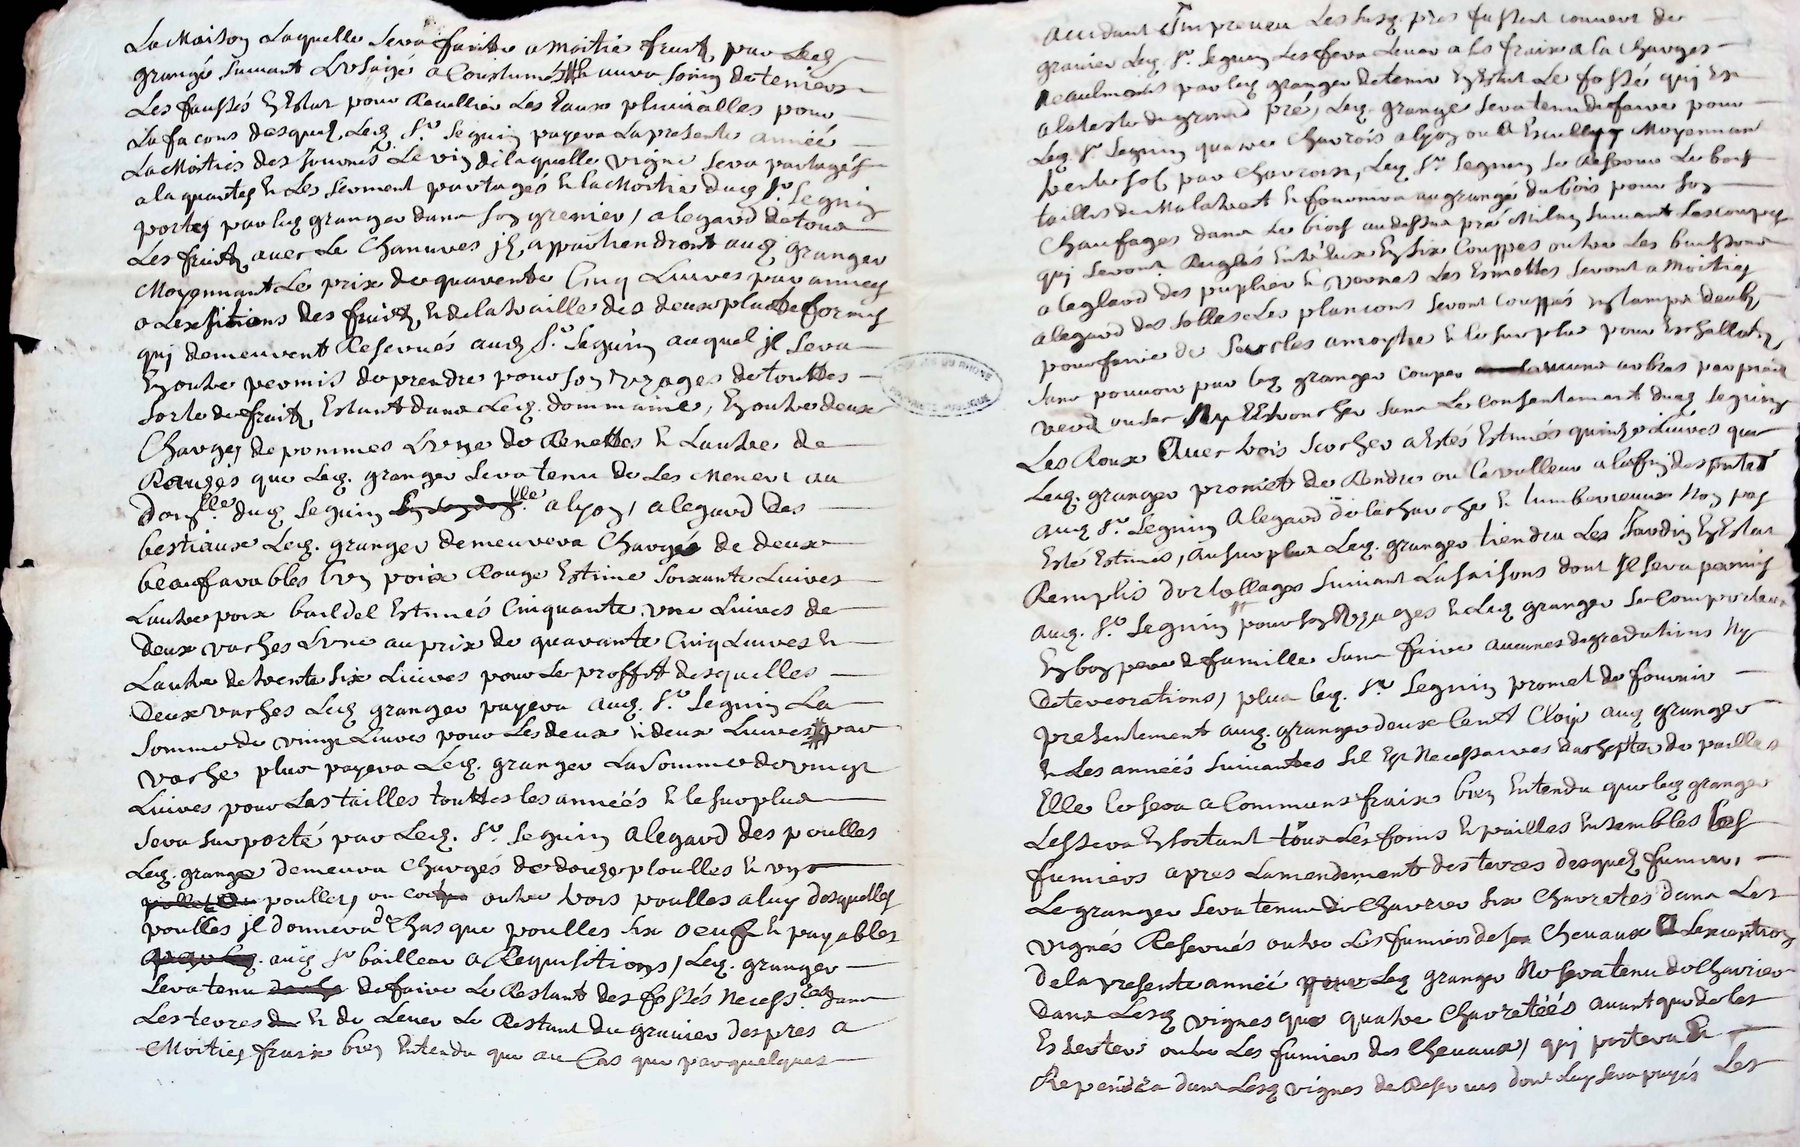 La Maison Laquelle sera faitte a Moitié fruit par Led
grangé suivant L'usagé a Coustumés # aura soing de tenir
Les faussés En Estat pour Recuillir Les Eaux pluvialles pour
La facons desquels Led. Sr Seguin payera La presente année
La Moitiés des Journés Le vin de laquelle vigne sera partagés
a la quartes & Les serment partagés & la Moitié dud Sr Seguin
portés par led granger dans son grenier, a legard de tous
Les fruits avec Le Chanuvres ils appartiendront aud granger
Moyennant Le prix de quarente Cinq Livres par année
a L'exsitions des fruits & de la traille des deux platteformes
qui demeurent Reservués aud Sr. Seguin auquel il sera
En outre permis de prendre pour son uzages de touttes
sorte de fruits Estant dans Led. dommaine, En outre deux
Charges de pommes L'une de Renettes & L'autre de
Rouges que Led. granger sera tenu de Les Mener au
domlle dud Seguin a Lyon, a legard des
bestiaux Led. granger demeurera Chargée de deux
beaufs arables L'un poix Rouge Estimé soixante Livres
L'autre poix bardel Estimés Cinquante, une Livres de
deux vaches L'une au prix de quarante Cinq Livres &
L'autre de trente six Livres pour Le proffit desquelles
deux vaches Led granger payera aud. Sr. Seguin La
somme de vingt Livres pour Les deux & deux Livres # par
vache plus payera Led. granger La Somme de vingt
Livres pour Las tailles touttes les années & le surplus
sera suporté par Led. Sr. Seguin a legard des poulles
Led. granger demeura Chargés de douze ploulles & un
poullet, ou outre trois poulles a luy desquelles
poulles il donnera de Chasque poulles six oeuf & payables
aud Sr bailleur a Requisitions, Led. granger
sera tenu de faire Le Restant des fossés Necessres dans
Les terres & de Lever Le Restant du gravier des pres a
Moities fraix bien Entendu que au Cas que par quelques
accidant Impreveu Les susd. pres fussent couvert de
gravier Led. Sr. Seguin Les fera Lever a ses fraix a la Charges
Neaulmoins par led granger de tenir En Estat Le fossé qui Est
a la teste du grand pré, Led. granger sera tenu de faire pour
Led. Sr Seguin quatre Charrois a Lyon ou a Escully Moyennant
trente sols par Charrois, Led. Sr Seguin se Reserve Le bois
taillis de & fournira au grangé du bois pour son
Chaufages dans Le bois au dessus pré suivant Les coupes
qui seront Reglés Entre deux En six Couppes outre Les buissons
a legard des puplier & vernes Les Esmottes seront a Moities
a legard des solles Les plancons seront Couppés
pour faire de sercles a moytie & le surplus pour Eschallats
sans pouvoir par led granger couper aucuns arbres par pied
verd ou sec Ny Esbrancher sans Le Consentement dud Seguin
Les Roux avec trois a Estés Estimés quinze Livres que
Led. granger promet de Rendre ou La valleur a la fin des
aud Sr. Seguin a legard de la charche & tumbereaux Non pas
Esté Estimés, au surplus Led. granger tiendra Les Jardin En Estat
Remplis d'ortollages suivant La saisons dont Il sera permis
aud. Sr. Seguin pour son uzages & Led granger se Comportera
En bon pere de famille sans faire aucunes degradations Ny
deterorations, plus led. Sr Seguin promet de fournir
presentement aud. granger deux Cent Cloip aud granger
& Les années suivantes sil Est Necessaires d'achepter de pailles
Elle Le sera a Communs fraix bien Entendu que led granger
Lessera En sortant tous Les foins & pailles Ensembles Les
fumiers apres Lamendement des terres desquels fumiers
Le granger sera tenu de Charrier six Charretes dans Les
vignes Reservés outre Les fumiers de ses Chevaux a L'exeption
de la presente année que Led granger Ne sera tenu de Charrier
dans Lesd vignes que quatre Charretées avant que de les
outre Les fumiers des Chevaux, qui portera &
Rependra dans Lesd vignes de Reserves dont Luy sera payés Les